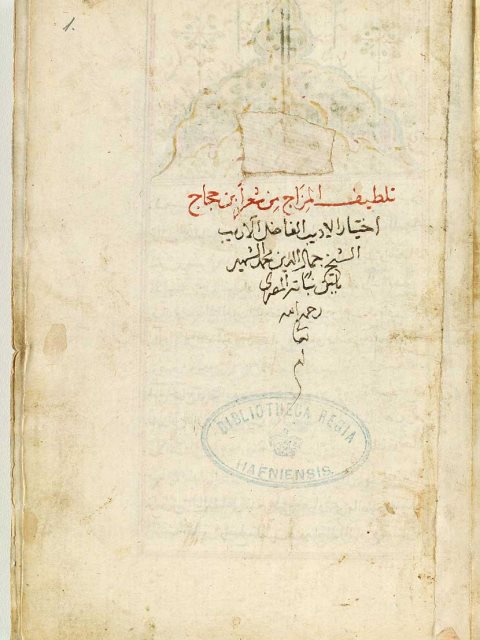 1.
تلطيف المزاج من شعر ابن حجاج
اختيار الاديب الفاضل الاريب
الشيخ جمال الدين محمد الشهير
بابن نباته المصري
رحمه الله
تعالى
BIBLIOTHECA REGIA
HAFNIENSIS